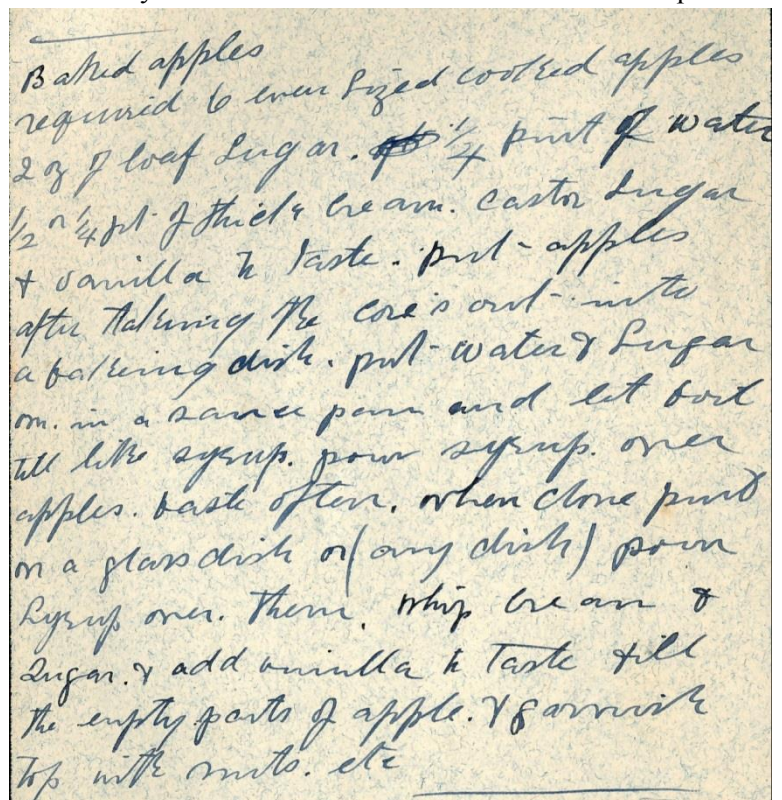 Baked apples
required 6 even sized cooked apples
2 oz of loaf sugar. 1/4 pint of water
1/2 or 1/4 pt of thick cream. castor sugar
& vanilla to taste. put apples
after takeing the core's out into
a bakeing dish. put water & sugar
on. in a sauce pan and let boil
till like syrup. pour syrup. over
apples. baste often. when done put
on a glass dish or (any dish) pour
syrup over. them. whip cream &
sugar. & add vanilla to taste fill
the empty parts of apple. & garnish
top with nuts. etc